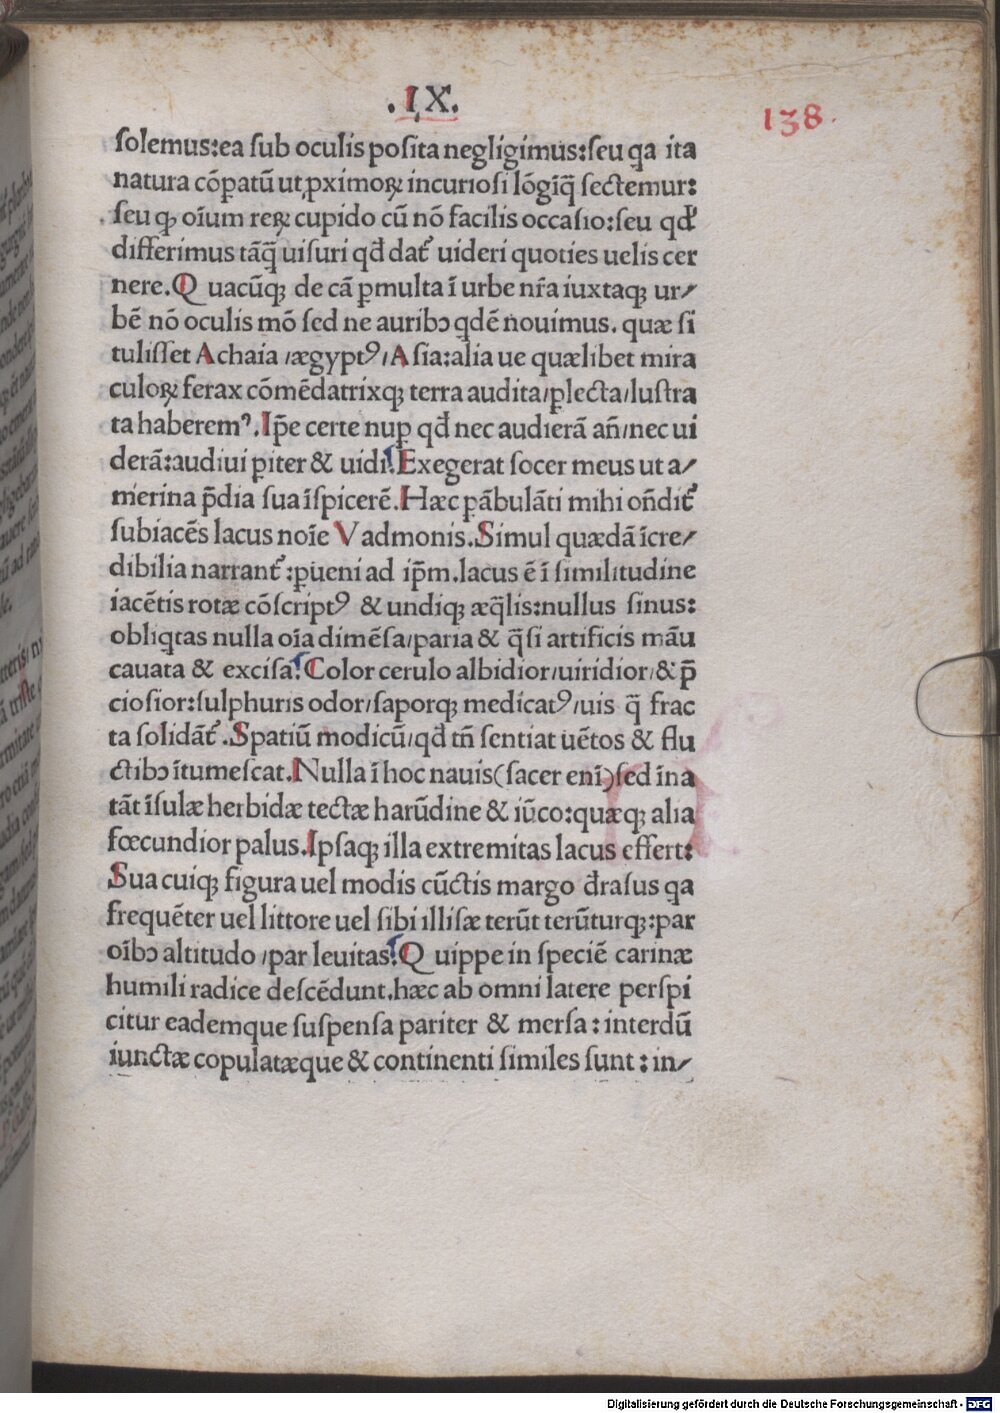 .IX.
138.
solemus:ea sub oculis posita negligimus:seu qa ita
natura cōpatū ut ꝓximoꝝ incuriosi lōgīq̄ sectemur:
seu ꝙ oīum reꝝ cupido cū nō facilis occasio:seu qđ
differimus tāq̄ uisuri qđ dat᷑ uideri quoties uelis cer
nere.Q uacūqꝫ de cā ꝑmulta ī urbe nr̄a iuxtaqꝫ ur⸗
bē nō oculis mō sed ne auribɔ qdē nouimus. quæ si
tulisset Achaia /ægyptꝰ/A sia:alia ue quælibet mira
culoꝝ ferax cōmēdatrixqꝫ terra audita/ꝑlecta/lustra
ta haberemꝰ.Ip̄e certe nuꝑ qđ nec audierā añ/nec ui
derā:audiui ꝑiter & uidi.Exegerat socer meus ut a⸗
merina p̄dia sua īspicerē.Hæc ꝑābulāti mihi oñdit᷑
subiacēs lacus noīe Vadmonis.Simul quædā īcre⸗
dibilia narrant᷑:ꝑueni ad ip̄m.lacus ē ī similitudine
iacētis rotæ cōscriptꝰ & undiqꝫ æq̄lis:nullus sinus:
obliqtas nulla oīa dimēsa/paria & q̄si artificis māu
cauata & excisa.Color cerulo albidior/uiridior/& p̄
ciosior:sulphuris odor/saporqꝫ medicatꝰ/uis q̄ frac
ta solidāt᷑.Spatiū modicū/qđ tñ sentiat uētos & flu
ctibɔ ītumescat.Nulla ī hoc nauis(sacer enī)sed īna
tāt īsulæ herbidæ tectæ harūdine & iūco:quæqꝫ alia
fœcundior palus.Ipsaqꝫ illa extremitas lacus effert:
Sua cuiqꝫ figura uel modis cūctis margo đrasus qa
frequēter uel littore uel sibi illisæ terūt terūturqꝫ:par
oībɔ altitudo /par leuitas.Q uippe in speciē carinæ
humili radice descēdunt.hæc ab omni latere perspi
citur eademque suspensa pariter & mersa: interdū
iunctæ copulatæque & continenti similes sunt: in⸗
Digitalisierung gefördert durch die Deutsche Forschungsgemeinschaft - DFG